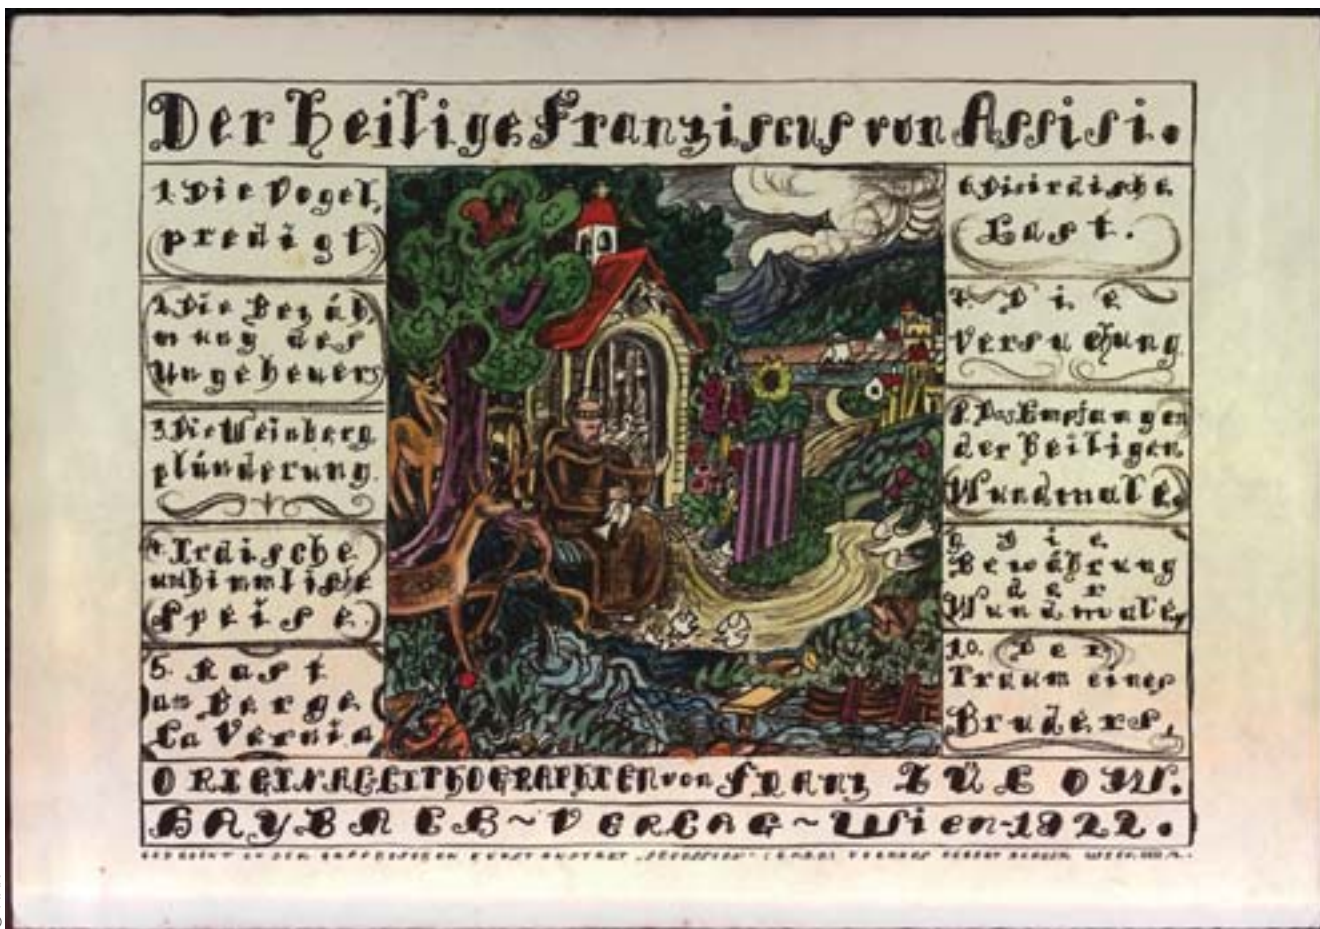 Der Heilige Franziscus von Assisi.
1. Die Vogel,
predigt
2. Die Bezäh,
mung des
Ungeheuers
3. Die Weinberg
plünderung.
4. Irdische
unhimmlische
Speise.
5. Rast
am Berge
La Vernia
6. Die irdische
Last.
7. Die
Versuchung
8. Das Empfangen
der Heiligen
Wundmale.
9. Die
Bewährung
der
Wundmale,
10. Der
Traum eines
Bruders,
ORIGINALLITHOGRAPHIEN von FRANZ ZÜLOW.
HAYBACH~VERLAG~Wien-1922.